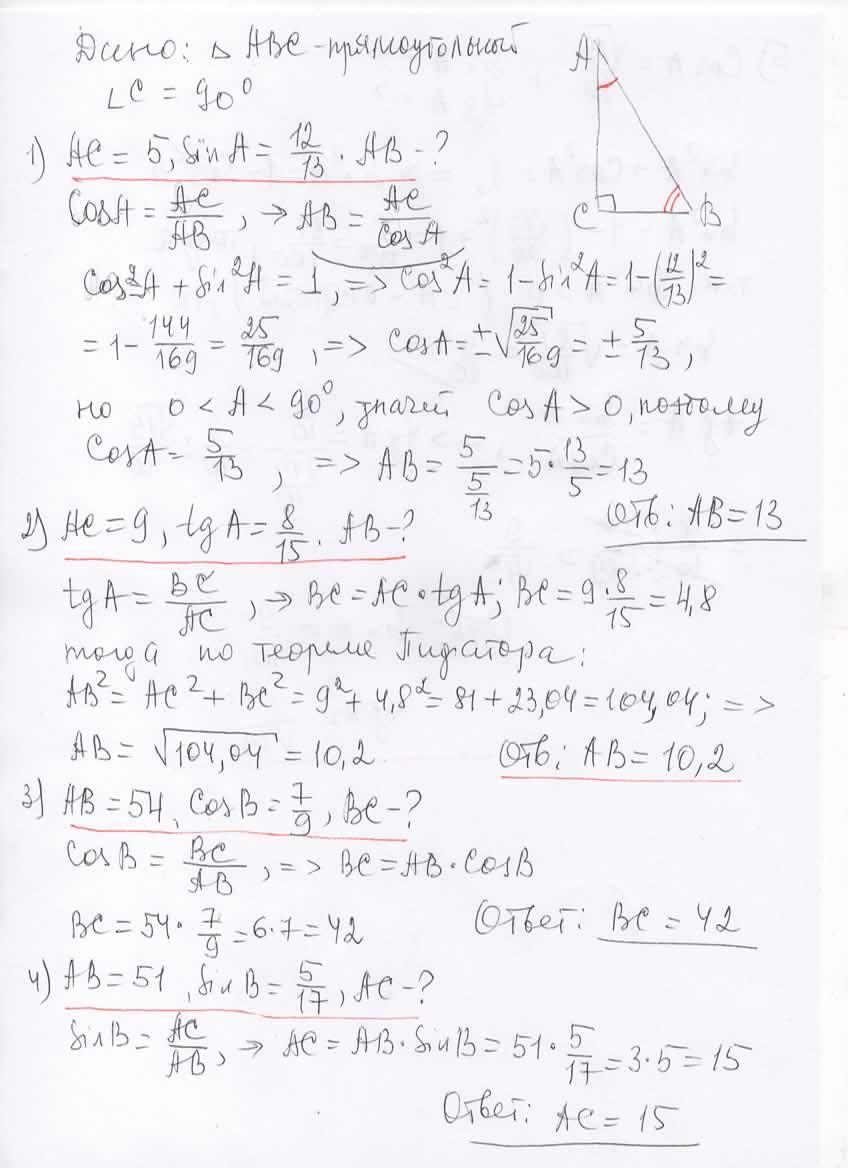 Дано: △ ABC - прямоугольный
∠C = 90°
A
C
B
1) AC = 5, sin A = 12/13. AB - ?
Cos A = AC/AB, → AB = AC/Cos A
Cos²A + Sin²A = 1, => Cos²A = 1 - Sin²A = 1 - (12/13)² =
= 1 - 144/169 = 25/169, => Cos A = ±√25/169 = ± 5/13,
но 0 < A < 90°, значит Cos A > 0, поэтому
Cos A = 5/13, => AB = 5/(5/13) = 5 · 13/5 = 13
Отв: AB = 13
2) AC = 9, tg A = 8/15. AB - ?
tg A = BC/AC, → BC = AC · tg A; BC = 9 · 8/15 = 4,8
тогда по теореме Пифагора:
AB² = AC² + BC² = 9² + 4,8² = 81 + 23,04 = 104,04; =>
AB = √104,04 = 10,2
Отв: AB = 10,2
3) AB = 54, Cos B = 7/9, BC - ?
Cos B = BC/AB, => BC = AB · Cos B
BC = 54 · 7/9 = 6 · 7 = 42
Ответ: BC = 42
4) AB = 51, Sin B = 5/17, AC - ?
Sin B = AC/AB, → AC = AB · Sin B = 51 · 5/17 = 3 · 5 = 15
Ответ: AC = 15